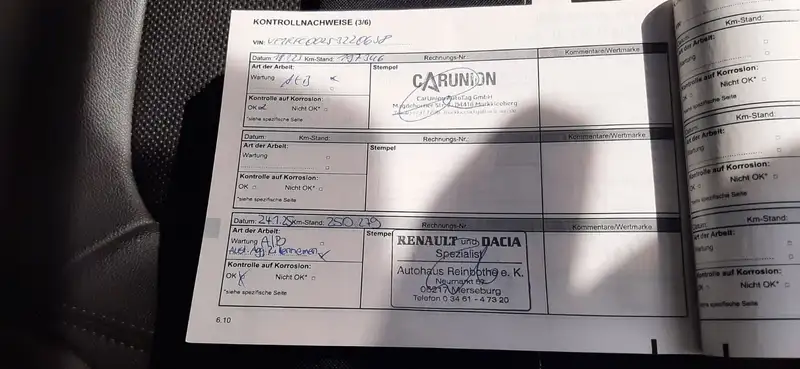 KONTROLLNACHWEISE (3/6)
VIN:
Datum: Km-Stand: Rechnungs-Nr. Kommentare/Wertmarke
Art der Arbeit: Stempel
Wartung A+B
CARUNION
CarUnion AutoTag GmbH
Magdeborner Str. 04416 Markkleeberg
Kontrolle auf Korrosion:
OK Nicht OK*
*siehe spezifische Seite
Datum: Km-Stand: Rechnungs-Nr. Kommentare/Wertmarke
Art der Arbeit: Stempel
Wartung
Kontrolle auf Korrosion:
OK Nicht OK*
*siehe spezifische Seite
Datum: 24.1.25 Km-Stand: 250.279 Rechnungs-Nr. Kommentare/Wertmarke
Art der Arbeit: Stempel
Wartung A/B
RENAULT und DACIA
Spezialist
Autohaus Reinbothe e. K.
Neumarkt
06217 Merseburg
Telefon 0 34 61 - 4 73 20
Kontrolle auf Korrosion:
OK Nicht OK*
*siehe spezifische Seite
6.10
Km-Stand:
Art der Arbeit:
Wartung
Kontrolle auf Korrosion:
OK Nicht OK*
*siehe spezifische Seite
Datum: Km-Stand:
Art der Arbeit:
Wartung
Kontrolle auf Korrosion:
OK Nicht OK*
*siehe spezifische Seite
Datum: Km-Stand:
Art der Arbeit:
Wartung
Kontrolle auf Korrosion:
OK Nicht OK*
*siehe spezifische Seite